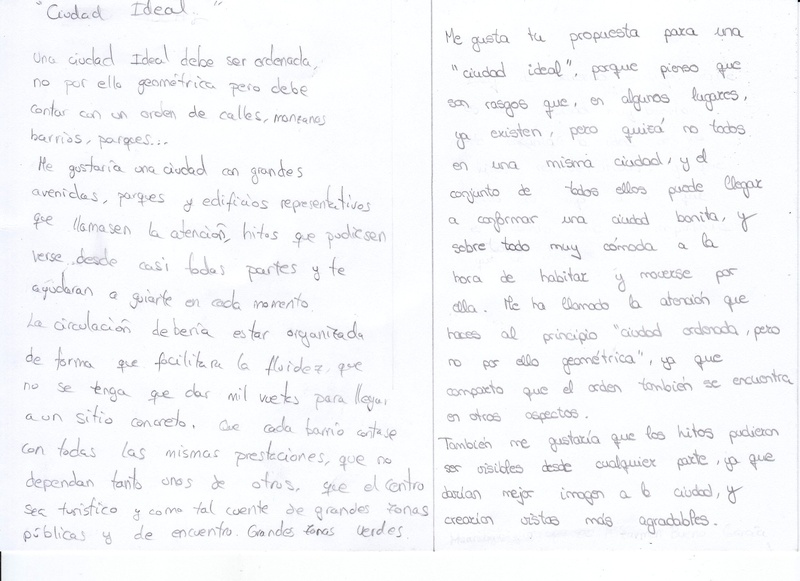 "Ciudad Ideal"
Una ciudad Ideal debe ser ordenada,
no por ello geométrica pero debe
contar con un orden de calles, manzanas
barrios, parques...
Me gustaría una ciudad con grandes
avenidas, parques y edificios representativos
que llamasen la atención, hitos que pudiesen
verse desde casi todas partes y te
ayudaran a guiarte en cada momento.
La circulación debería estar organizada
de forma que facilitara la fluidez, que
no se tenga que dar mil vueltas para llegar
a un sitio concreto. Que cada barrio contase
con todas las mismas prestaciones, que no
dependan tanto unos de otros, que el centro
sea turístico y como tal cuente de grandes zonas
públicas y de encuentro. Grandes zonas verdes.
Me gusta tu propuesta para una
"ciudad ideal", porque pienso que
son rasgos que, en algunos lugares,
ya existen, pero quizá no todos
en una misma ciudad, y el
conjunto de todos ellos puede llegar
a conformar una ciudad bonita, y
sobre todo muy cómoda a la
hora de habitar y moverse por
ella. Me ha llamado la atención que
haces al principio "ciudad ordenada, pero
no por ello geométrica", ya que
comparto que el orden también se encuentra
en otros aspectos.
También me gustaría que los hitos pudieran
ser visibles desde cualquier parte, ya que
darían mejor imagen a la ciudad, y
crearían vistas más agradables.